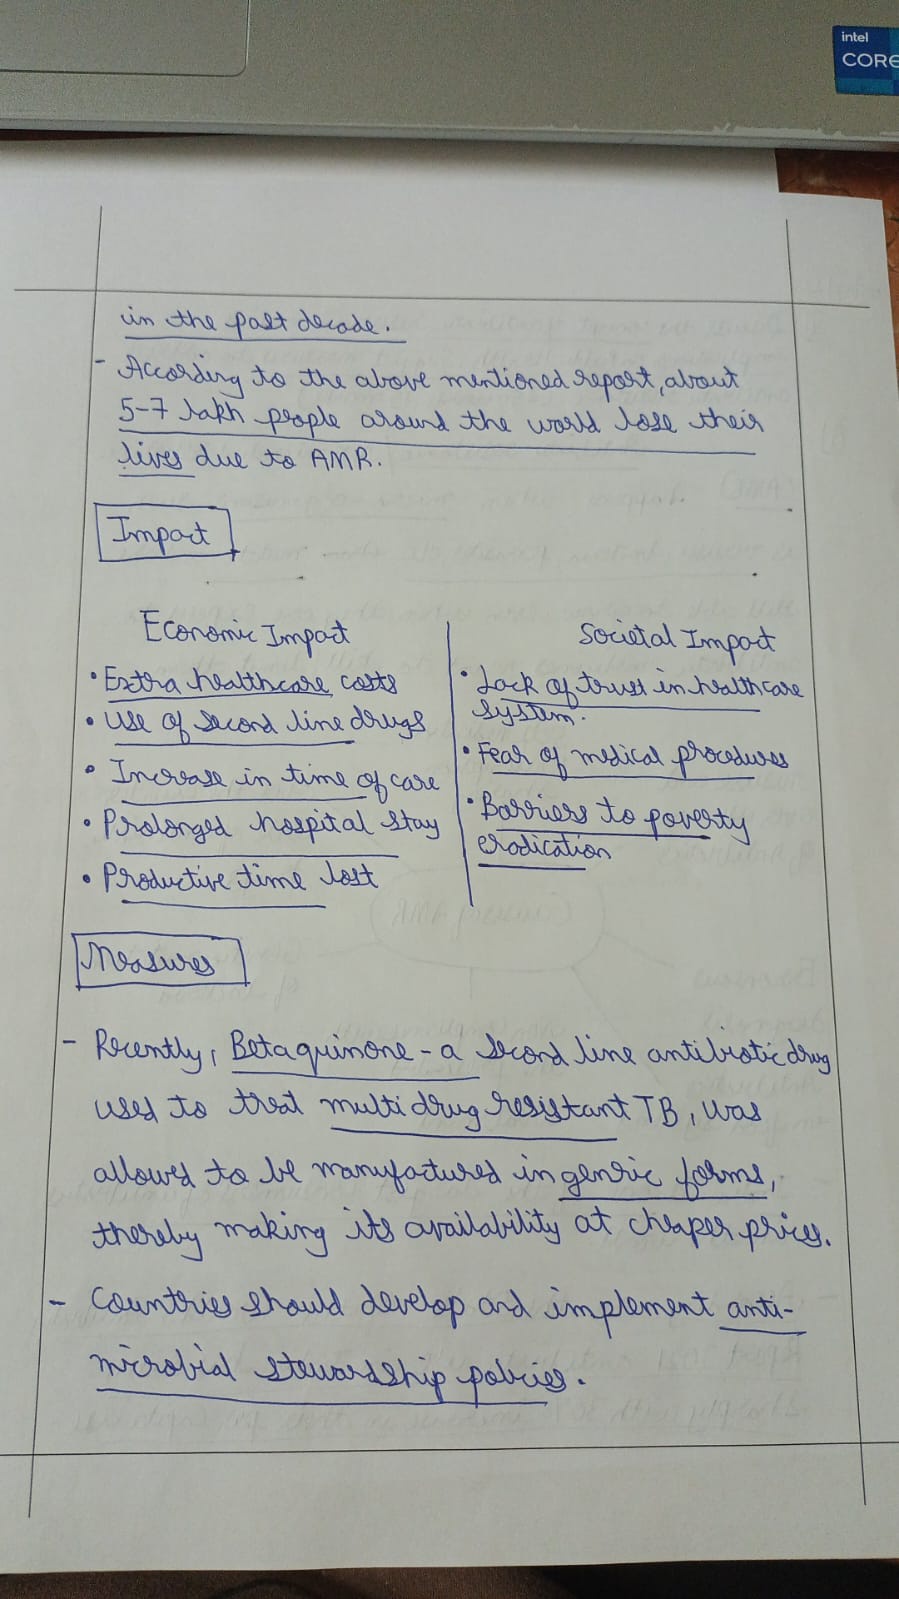 intel
CORE
in the past decade.
- According to the above mentioned report, about
5-7 lakh people around the world lose their
lives due to AMR.
Impact
Economic Impact
• Extra healthcare costs
• Use of second line drugs
• Increase in time of care
• Prolonged hospital stay
• Productive time lost
Societal Impact
• Lack of trust in healthcare
system.
• Fear of medical procedures
• Barriers to poverty
eradication
Measures
- Recently, Betaquinone - a second line antibiotic drug
used to treat multi drug resistant TB, was
allowed to be manufactured in generic forms,
thereby making its availability at cheaper prices.
- Countries should develop and implement anti-
microbial stewardship policies.